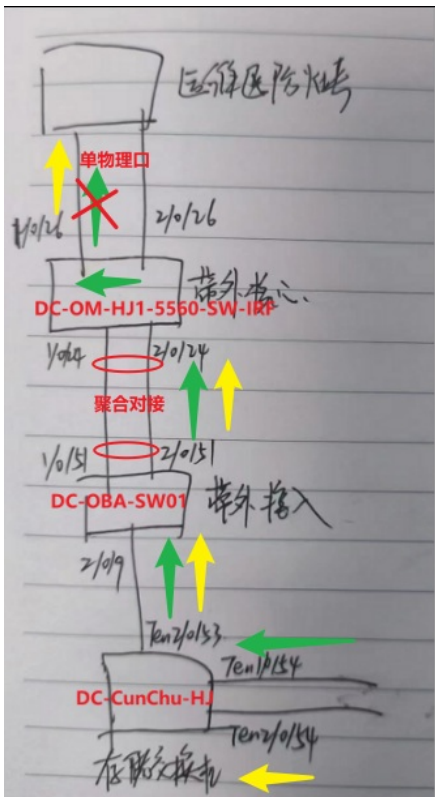 单物理口
1/0/26
2/0/26
带外核心
DC-OM-HJ1-5560-SW-IRF
1/0/24
2/0/24
聚合对接
1/0/51
2/0/51
DC-OBA-SW01
带外接入
2/0/9
Ten2/0/53
Ten1/0/54
DC-CunChu-HJ
Ten2/0/54
存储交换机